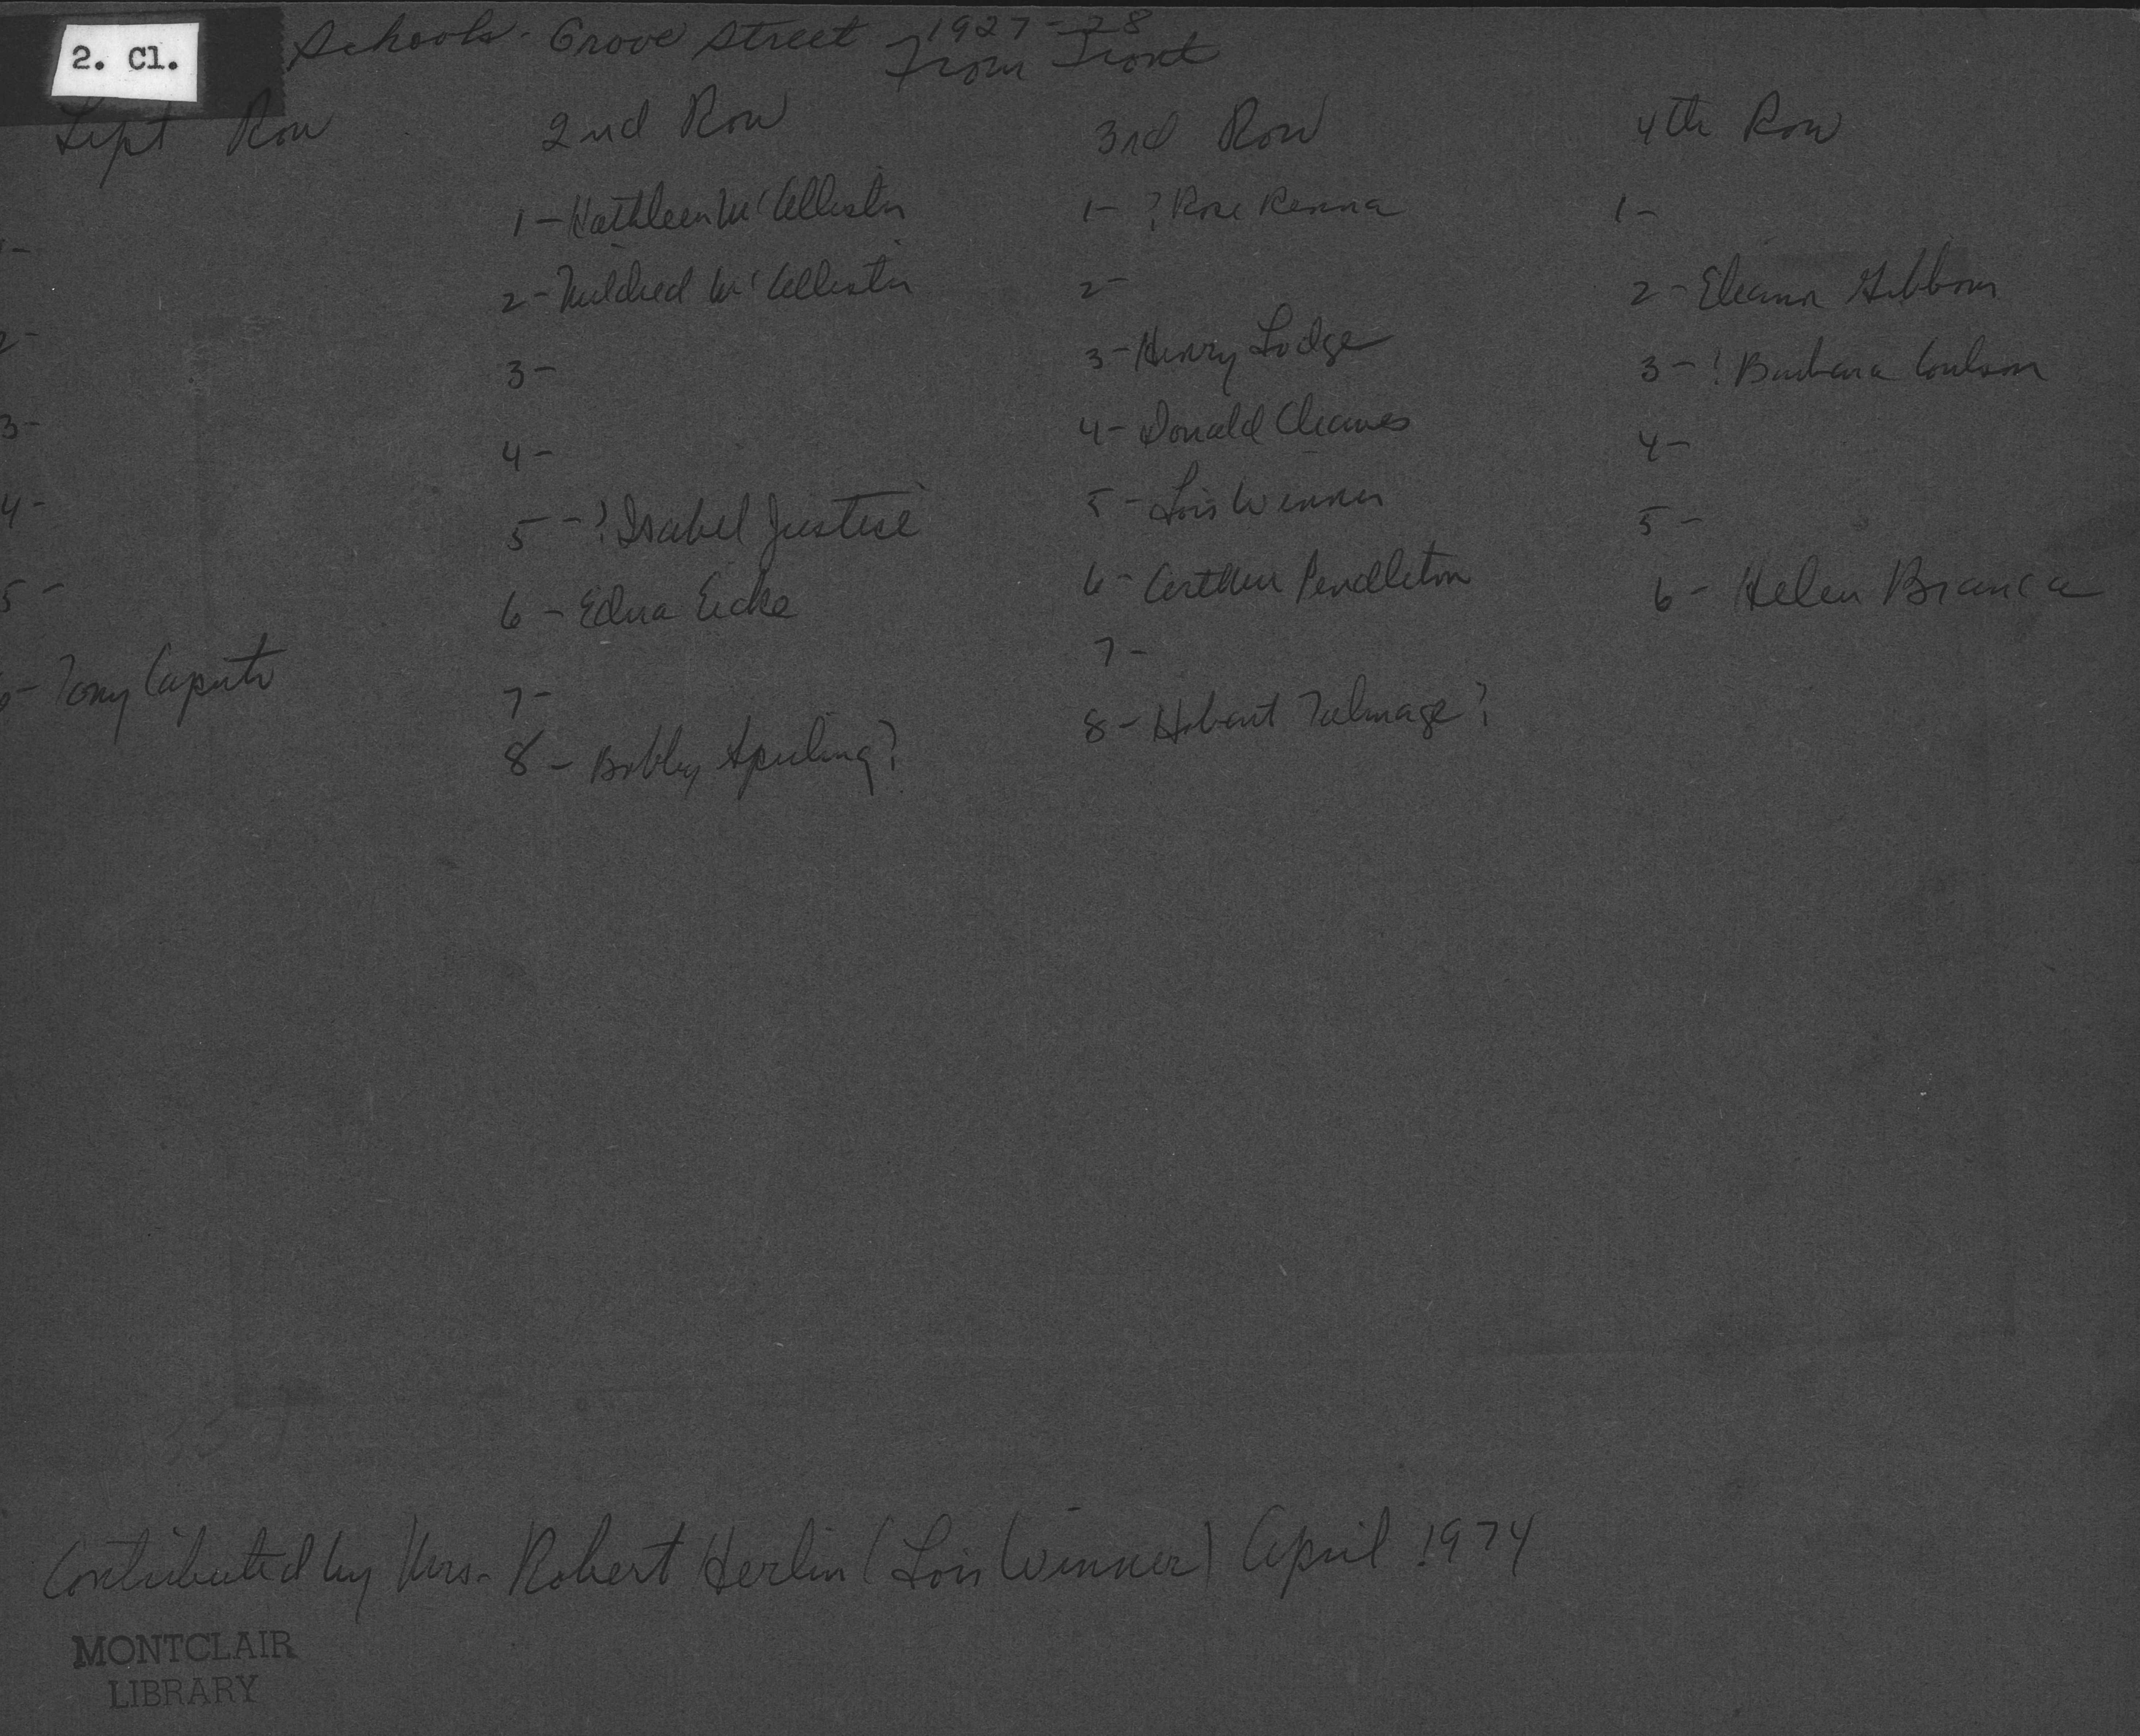 2. Cl.
Schools - Grove Street 1927-28
From Front
Row
1-
2-
3-
4-
5-
6- Tony Caputo
2nd Row
1- Kathleen McCallister
2- Mildred McCallister
3-
4-
5- ? Isabel Justice
6- Edna Eicke
7-
8- Bobby Sperling?
3rd Row
1- ? Rose Renna
2-
3- Henry Lodge
4- Donald Cleaves
5- Lois Winner
6- Arthur Pendleton
7-
8- Hobart Talmage?
4th Row
1-
2- Eleanor Gibbons
3- ? Barbara Coulson
4-
5-
6- Helen Branca
Contributed by Mrs. Robert Herlin (Lois Winner) April 1974
MONTCLAIR
LIBRARY